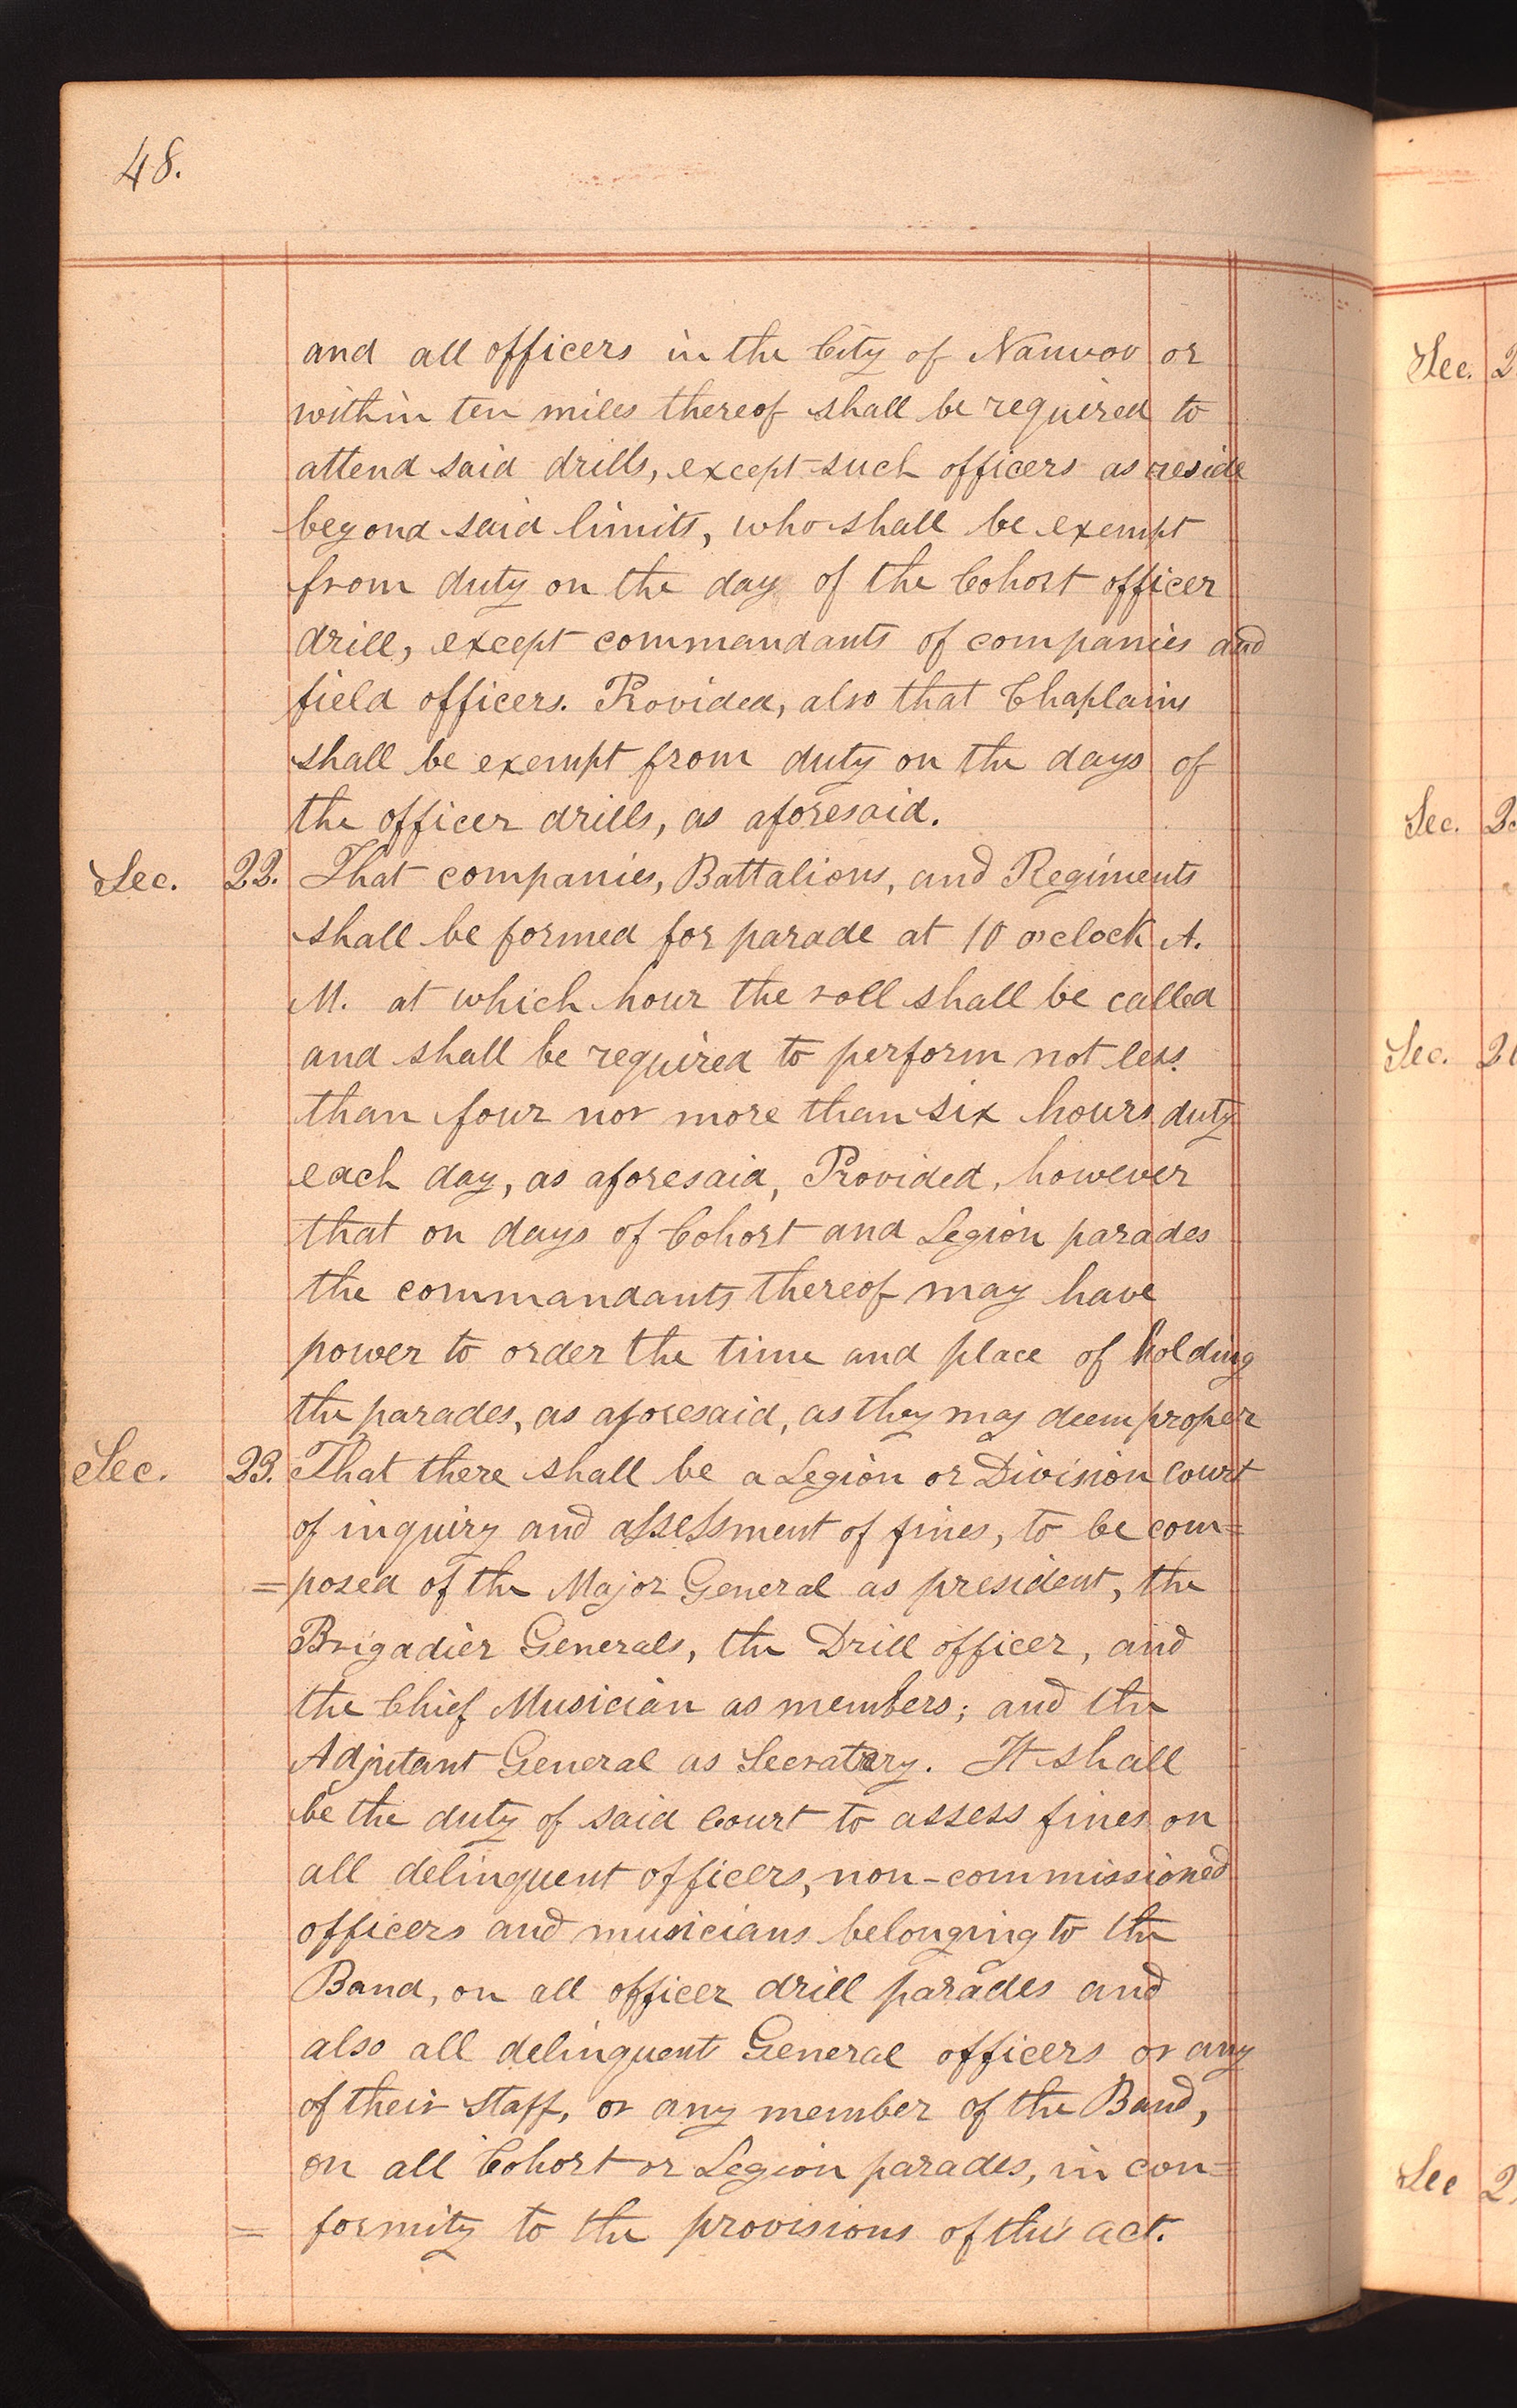 48.
and all officers in the City of Nauvoo or
within ten miles thereof shall be required to
attend said drills, except such officers as reside
beyond said limits, who shall be exempt
from duty on the day of the Cohort officer
drill, except commandants of companies and
field officers. Provided, also that Chaplains
shall be exempt from duty on the days of
the officer drills, as aforesaid.
Sec. 22. That companies, Battalions, and Regiments
shall be formed for parade at 10 o'clock A.
M. at which hour the roll shall be called
and shall be required to perform not less
than four nor more than six hours duty
each day, as aforesaid, Provided, however
that on days of Cohort and Legion parades
the commandants thereof may have
power to order the time and place of holding
the parades, as aforesaid, as they may deem proper
Sec. 23. That there shall be a Legion or Division court
of inquiry and assessment of fines, to be com=
=posed of the Major General as president, the
Brigadier Generals, the Drill officer, and
the Chief Musician as members; and the
Adjutant General as Secratery. It shall
be the duty of said Court to assess fines on
all delinquent officers, non-commissioned
officers and musicians belonging to the
Band, on all officer drill parades and
also all delinquent General officers or any
of their Staff, or any member of the Band,
on all Cohort or Legion parades, in con=
= formity to the provisions of this act.
Sec. 2
Sec. 2
Sec. 2
Sec 2